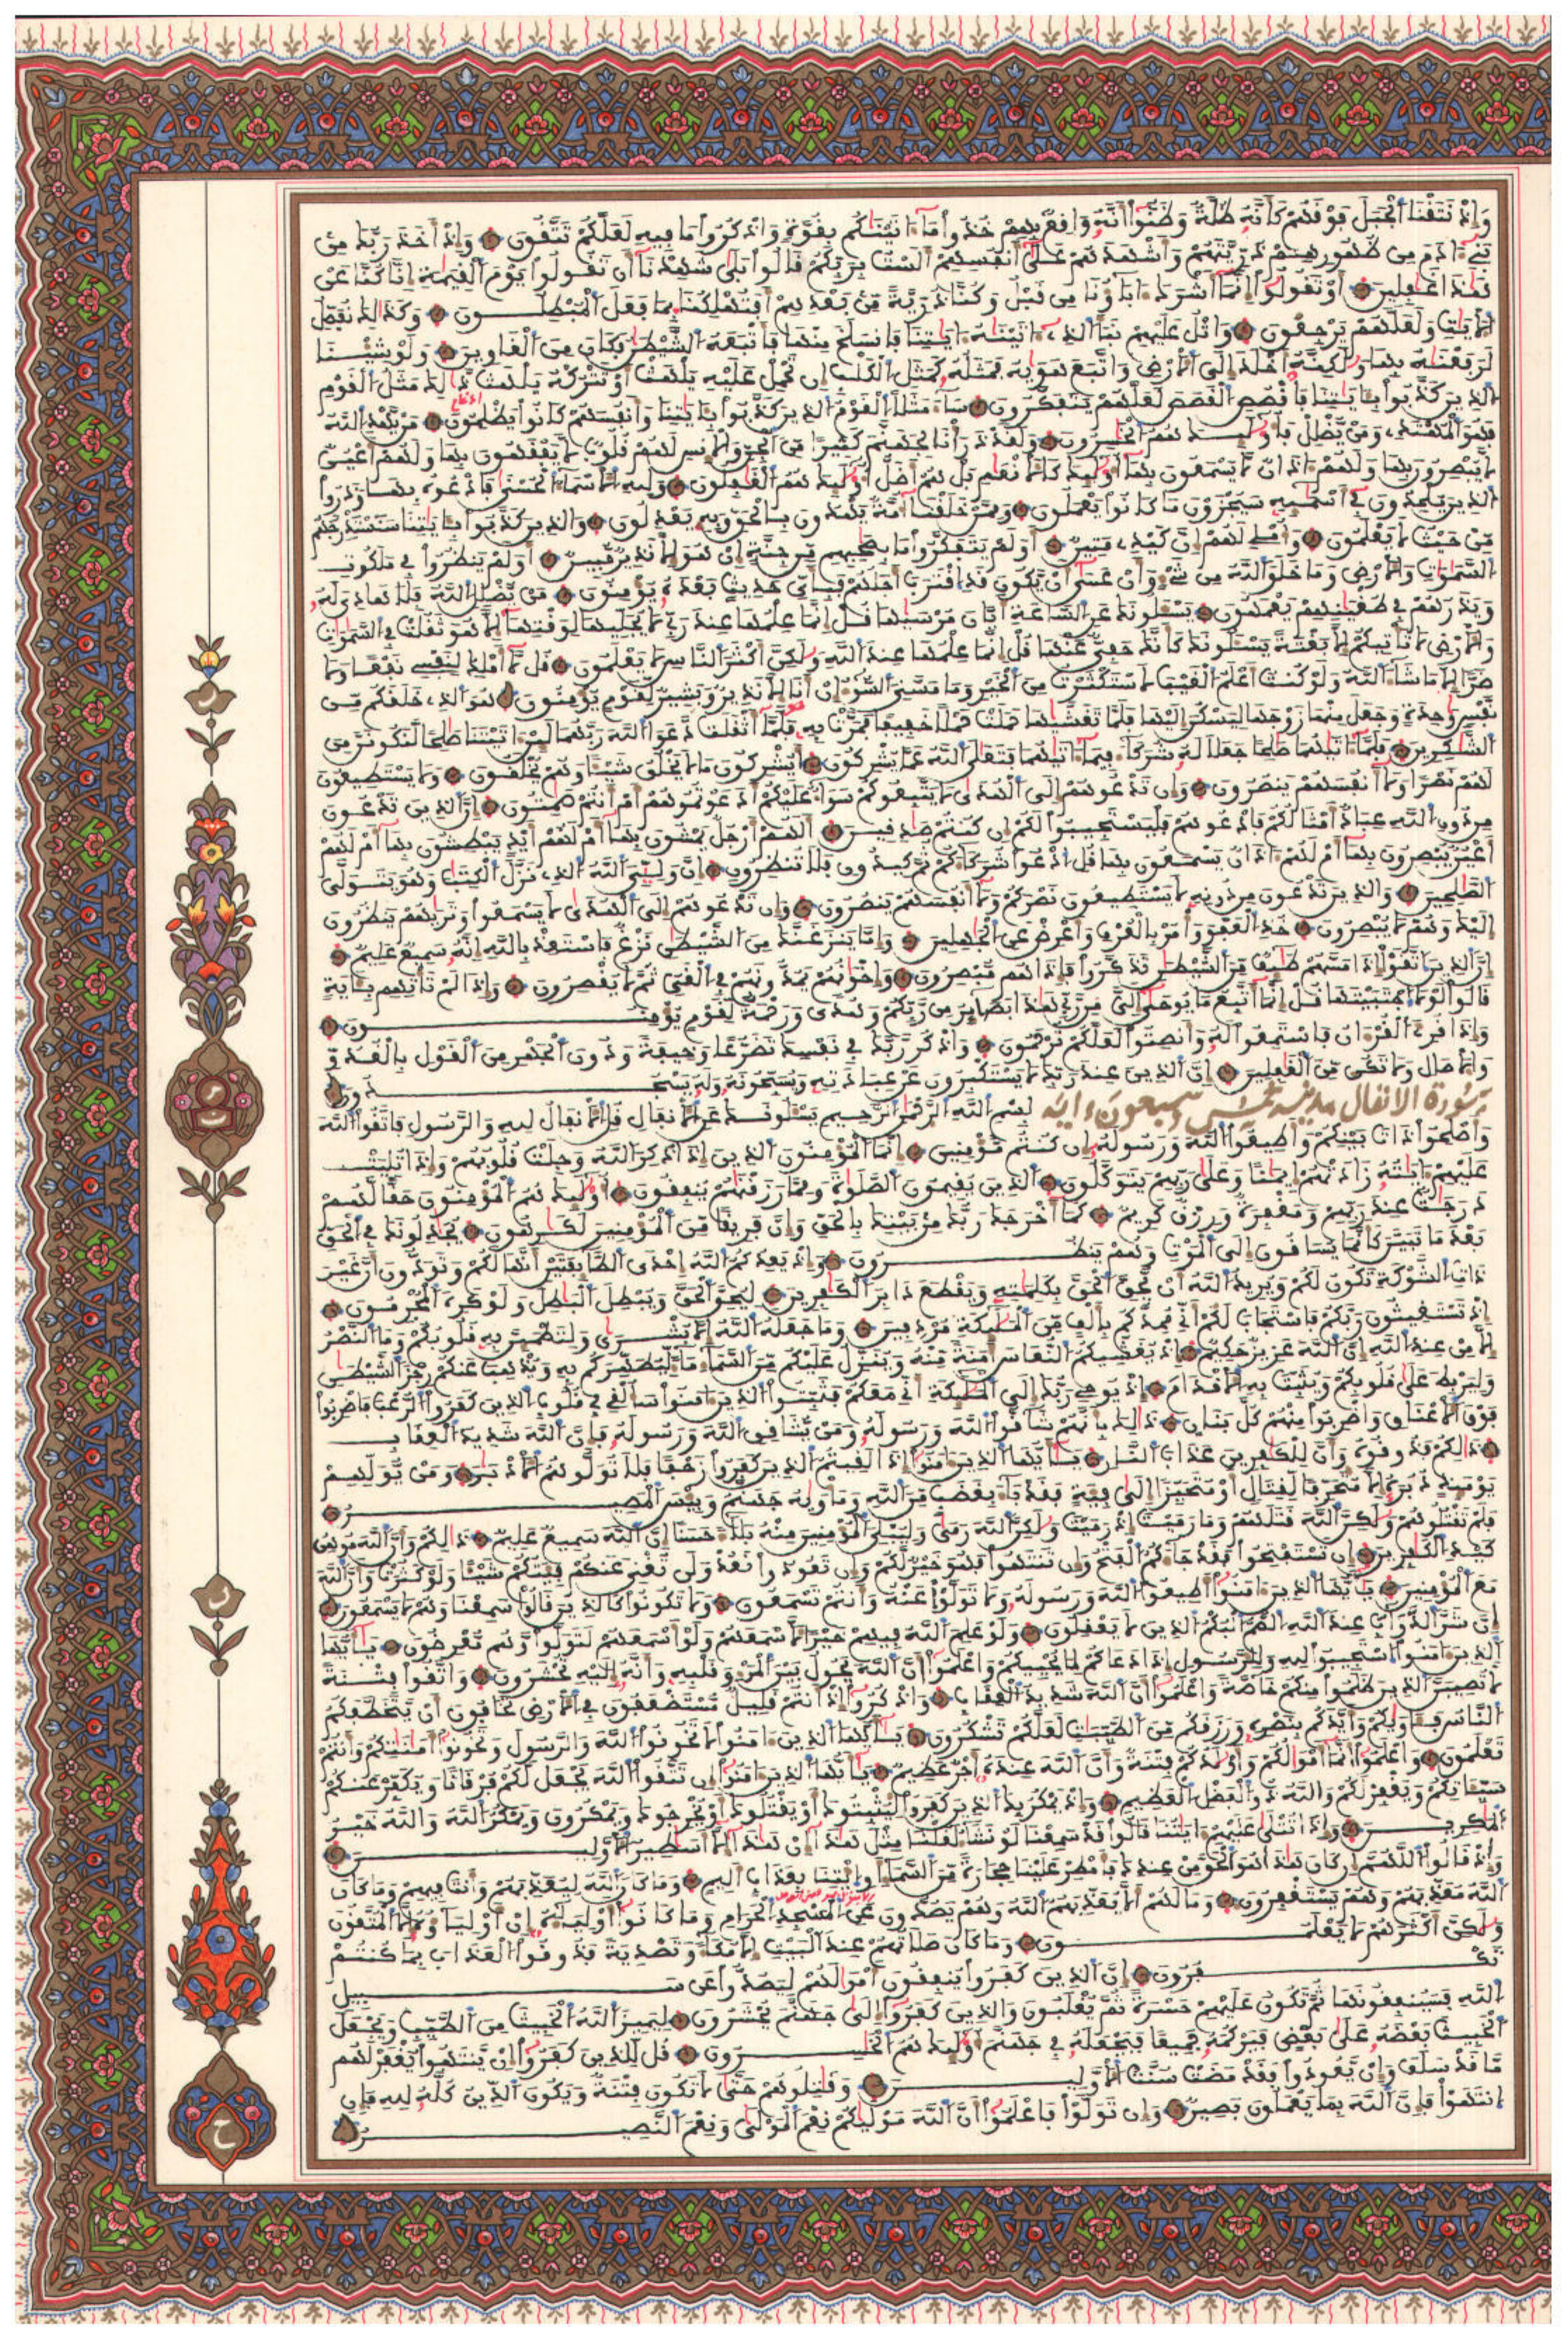 وإذ نتقنا الجبل فوقهم كأنه ظلة وظنوا أنه واقع بهم خذوا ما ءاتينكم بقوة واذكروا ما فيه لعلكم تتقون وإذ أخذ ربك من
بني ءادم من ظهورهم ذريتهم وأشهدهم على أنفسهم ألست بربكم قالوا بلى شهدنا أن تقولوا يوم القيمة إنا كنا عن
هذا غفلين أو تقولوا إنما أشرك ءاباؤنا من قبل وكنا ذرية من بعدهم أفتهلكنا بما فعل المبطلون وكذلك نفصل
الأيت ولعلهم يرجعون واتل عليهم نبأ الذي ءاتينه ءايتنا فانسلخ منها فأتبعه الشيطن فكان من الغاوين ولو شئنا
لرفعنه بها ولكنه أخلد إلى الأرض واتبع هويه فمثله كمثل الكلب إن تحمل عليه يلهث أو تتركه يلهث ذلك مثل القوم
الذين كذبوا بئايتنا فاقصص القصص لعلهم يتفكرون ساء مثلا القوم الذين كذبوا بئايتنا وأنفسهم كانوا يظلمون من يهد الله
فهو المهتدي ومن يضلل فأولئك هم الخسرون ولقد ذرأنا لجهنم كثيرا من الجن والإنس لهم قلوب لا يفقهون بها ولهم أعين
لا يبصرون بها ولهم ءاذان لا يسمعون بها أولئك كالأنعم بل هم أضل أولئك هم الغفلون ولله الأسماء الحسنى فادعوه بها وذروا
الذين يلحدون في أسمئه سيجزون ما كانوا يعملون وممن خلقنا أمة يهدون بالحق وبه يعدلون والذين كذبوا بئايتنا سنستدرجهم
من حيث لا يعلمون وأملي لهم إن كيدي متين أولم يتفكروا ما بصاحبهم من جنة إن هو إلا نذير مبين أولم ينظروا في ملكوت
السموت والأرض وما خلق الله من شيء وأن عسى أن يكون قد اقترب أجلهم فبأي حديث بعده يؤمنون من يضلل الله فلا هادي له
ونذرهم في طغينهم يعمهون يسئلونك عن الساعة أيان مرسيها قل إنما علمها عند ربي لا يجليها لوقتها إلا هو ثقلت في السموت
والأرض لا تأتيكم إلا بغتة يسئلونك كأنك حفي عنها قل إنما علمها عند الله ولكن أكثر الناس لا يعلمون قل لا أملك لنفسي نفعا ولا
ضرا إلا ما شاء الله ولو كنت أعلم الغيب لاستكثرت من الخير وما مسني السوء إن أنا إلا نذير وبشير لقوم يؤمنون هو الذي خلقكم من
نفس وحدة وجعل منها زوجها ليسكن إليها فلما تغشيها حملت حملا خفيفا فمرت به فلما أثقلت دعوا الله ربهما لئن ءاتيتنا صلحا لنكونن من
الشكرين فلما ءاتيهما صلحا جعلا له شركا فيما ءاتيهما فتعلى الله عما يشركون أيشركون ما لا يخلق شيئا وهم يخلقون ولا يستطيعون
لهم نصرا ولا أنفسهم ينصرون وإن تدعوهم إلى الهدى لا يتبعوكم سواء عليكم أدعوتموهم أم أنتم صمتون إن الذين تدعون
من دون الله عباد أمثالكم فادعوهم فليستجيبوا لكم إن كنتم صدقين ألهم أرجل يمشون بها أم لهم أيد يبطشون بها أم لهم
أعين يبصرون بها أم لهم ءاذان يسمعون بها قل ادعوا شركاءكم ثم كيدون فلا تنظرون إن وليي الله الذي نزل الكتب وهو يتولى
الصلحين والذين تدعون من دونه لا يستطيعون نصركم ولا أنفسهم ينصرون وإن تدعوهم إلى الهدى لا يسمعوا وتريهم ينظرون
إليك وهم لا يبصرون خذ العفو وأمر بالعرف وأعرض عن الجهلين وإما ينزغنك من الشيطن نزغ فاستعذ بالله إنه سميع عليم
إن الذين اتقوا إذا مسهم طئف من الشيطن تذكروا فإذا هم مبصرون وإخونهم يمدونهم في الغي ثم لا يقصرون وإذا لم تأتهم بئاية
قالوا لولا اجتبيتها قل إنما أتبع ما يوحى إلي من ربي هذا بصائر من ربكم وهدى ورحمة لقوم يؤمنون
وإذا قرئ القرءان فاستمعوا له وأنصتوا لعلكم ترحمون واذكر ربك في نفسك تضرعا وخيفة ودون الجهر من القول بالغدو
والأصال ولا تكن من الغفلين إن الذين عند ربك لا يستكبرون عن عبادته ويسبحونه وله يسجدون
سورة الانفال مدنية خمس وسبعون ءاية بسم الله الرحمن الرحيم يسئلونك عن الأنفال قل الأنفال لله والرسول فاتقوا الله
وأصلحوا ذات بينكم وأطيعوا الله ورسوله إن كنتم مؤمنين إنما المؤمنون الذين إذا ذكر الله وجلت قلوبهم وإذا تليت
عليهم ءايته زادتهم إيمنا وعلى ربهم يتوكلون الذين يقيمون الصلوة ومما رزقنهم ينفقون أولئك هم المؤمنون حقا لهم
درجت عند ربهم ومغفرة ورزق كريم كما أخرجك ربك من بيتك بالحق وإن فريقا من المؤمنين لكرهون يجدلونك في الحق
بعد ما تبين كأنما يساقون إلى الموت وهم ينظرون وإذ يعدكم الله إحدى الطائفتين أنها لكم وتودون أن غير
ذات الشوكة تكون لكم ويريد الله أن يحق الحق بكلمته ويقطع دابر الكفرين ليحق الحق ويبطل البطل ولو كره المجرمون
إذ تستغيثون ربكم فاستجاب لكم أني ممدكم بألف من الملئكة مردفين وما جعله الله إلا بشرى ولتطمئن به قلوبكم وما النصر
إلا من عند الله إن الله عزيز حكيم إذ يغشيكم النعاس أمنة منه وينزل عليكم من السماء ماء ليطهركم به ويذهب عنكم رجز الشيطن
وليربط على قلوبكم ويثبت به الأقدام إذ يوحي ربك إلى الملئكة أني معكم فثبتوا الذين ءامنوا سألقي في قلوب الذين كفروا الرعب فاضربوا
فوق الأعناق واضربوا منهم كل بنان ذلك بأنهم شاقوا الله ورسوله ومن يشاقق الله ورسوله فإن الله شديد العقاب
ذلكم فذوقوه وأن للكفرين عذاب النار يأيها الذين ءامنوا إذا لقيتم الذين كفروا زحفا فلا تولوهم الأدبار ومن يولهم
يومئذ دبره إلا متحرفا لقتال أو متحيزا إلى فئة فقد باء بغضب من الله ومأويه جهنم وبئس المصير
فلم تقتلوهم ولكن الله قتلهم وما رميت إذ رميت ولكن الله رمى وليبلي المؤمنين منه بلاء حسنا إن الله سميع عليم ذلكم وأن الله موهن
كيد الكفرين إن تستفتحوا فقد جاءكم الفتح وإن تنتهوا فهو خير لكم وإن تعودوا نعد ولن تغني عنكم فئتكم شيئا ولو كثرت وأن الله
مع المؤمنين يأيها الذين ءامنوا أطيعوا الله ورسوله ولا تولوا عنه وأنتم تسمعون ولا تكونوا كالذين قالوا سمعنا وهم لا يسمعون
إن شر الدواب عند الله الصم البكم الذين لا يعقلون ولو علم الله فيهم خيرا لأسمعهم ولو أسمعهم لتولوا وهم معرضون يأيها
الذين ءامنوا استجيبوا لله وللرسول إذا دعاكم لما يحييكم واعلموا أن الله يحول بين المرء وقلبه وأنه إليه تحشرون واتقوا فتنة
لا تصيبن الذين ظلموا منكم خاصة واعلموا أن الله شديد العقاب واذكروا إذ أنتم قليل مستضعفون في الأرض تخافون أن يتخطفكم
الناس فئاويكم وأيدكم بنصره ورزقكم من الطيبت لعلكم تشكرون يأيها الذين ءامنوا لا تخونوا الله والرسول وتخونوا أمنتكم وأنتم
تعلمون واعلموا أنما أمولكم وأولدكم فتنة وأن الله عنده أجر عظيم يأيها الذين ءامنوا إن تتقوا الله يجعل لكم فرقانا ويكفر عنكم
سيئاتكم ويغفر لكم والله ذو الفضل العظيم وإذ يمكر بك الذين كفروا ليثبتوك أو يقتلوك أو يخرجوك ويمكرون ويمكر الله والله خير
المكرين وإذا تتلى عليهم ءايتنا قالوا قد سمعنا لو نشاء لقلنا مثل هذا إن هذا إلا أسطير الأولين
وإذ قالوا اللهم إن كان هذا هو الحق من عندك فأمطر علينا حجارة من السماء أو ائتنا بعذاب أليم وما كان الله ليعذبهم وأنت فيهم وما كان
الله معذبهم وهم يستغفرون وما لهم ألا يعذبهم الله وهم يصدون عن المسجد الحرام وما كانوا أولياءه إن أولياؤه إلا المتقون
ولكن أكثرهم لا يعلمون وما كان صلاتهم عند البيت إلا مكاء وتصدية فذوقوا العذاب بما كنتم
تكفرون إن الذين كفروا ينفقون أمولهم ليصدوا عن سبيل
الله فسينفقونها ثم تكون عليهم حسرة ثم يغلبون والذين كفروا إلى جهنم يحشرون ليميز الله الخبيث من الطيب ويجعل
الخبيث بعضه على بعض فيركمه جميعا فيجعله في جهنم أولئك هم الخسرون قل للذين كفروا إن ينتهوا يغفر لهم
ما قد سلف وإن يعودوا فقد مضت سنت الأولين وقتلوهم حتى لا تكون فتنة ويكون الدين كله لله فإن
انتهوا فإن الله بما يعملون بصير وإن تولوا فاعلموا أن الله موليكم نعم المولى ونعم النصير